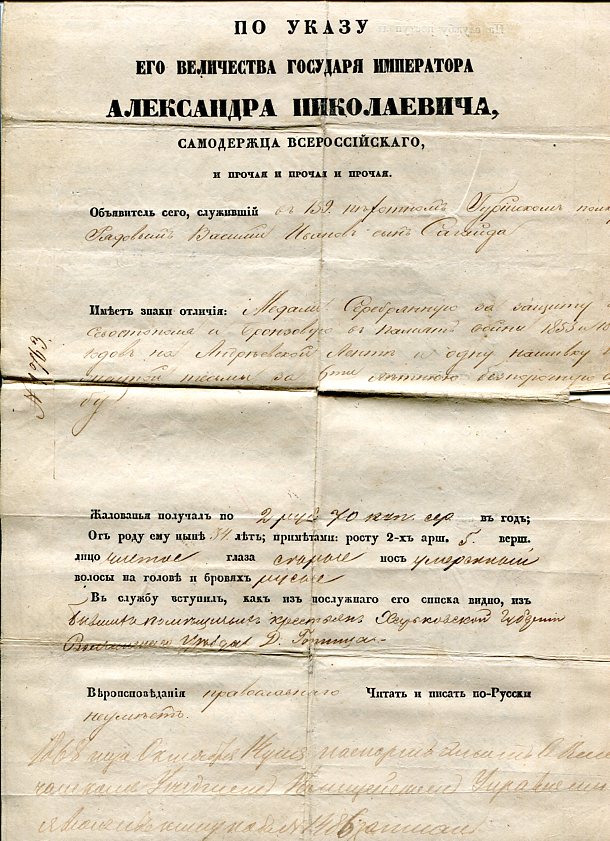 ПО УКАЗУ
ЕГО ВЕЛИЧЕСТВА ГОСУДАРЯ ИМПЕРАТОРА
АЛЕКСАНДРА НИКОЛАЕВИЧА,
САМОДЕРЖЦА ВСЕРОССІЙСКАГО,
И ПРОЧАЯ И ПРОЧАЯ И ПРОЧАЯ.
Объявитель сего, служившій въ 159. пѣхотномъ Гурійскомъ
Рядовымъ Василій Ивановъ сынъ Сагайда
Имѣетъ знаки отличія: Медали Серебрянную за защиту
Севостополя и бронзовую въ память войны 1853
годовъ на Андреевской Лентѣ и одну нашивку
тесьмы за лѣтнюю безпорочную
бу
Жалованья получалъ по 2 руб 70 коп. сер въ годъ;
Отъ роду ему нынѣ 34 лѣтъ; примѣтами: росту 2-хъ арш. 5 верш.
лицо чистое глаза сѣрые носъ умеренный
волосы на головѣ и бровяхъ русые
Въ службу вступилъ, какъ изъ послужнаго его списка видно, изъ
бывшихъ помѣщичьихъ крестьянъ Харьковской Губерніи
Уѣзда Д.
Вѣроисповѣданія православнаго Читать и писать по-Русски
неумѣетъ.
1868 года Октября
Уѣздномъ Полицейскомъ Управленіи